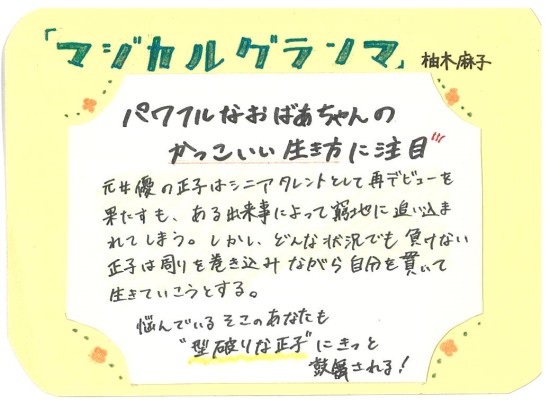 「マジカルグランマ」 柚木麻子
パワフルなおばあちゃんの
かっこいい生き方に注目!!!
元女優の正子はシニアタレントとして再デビューを
果たすも、ある出来事によって窮地に追い込ま
れてしまう。しかし、どんな状況でも負けない
正子は周りを巻き込みながら自分を貫いて
生きていこうとする。
悩んでいるそこのあなたも
"型破りな正子"にきっと
鼓舞される!